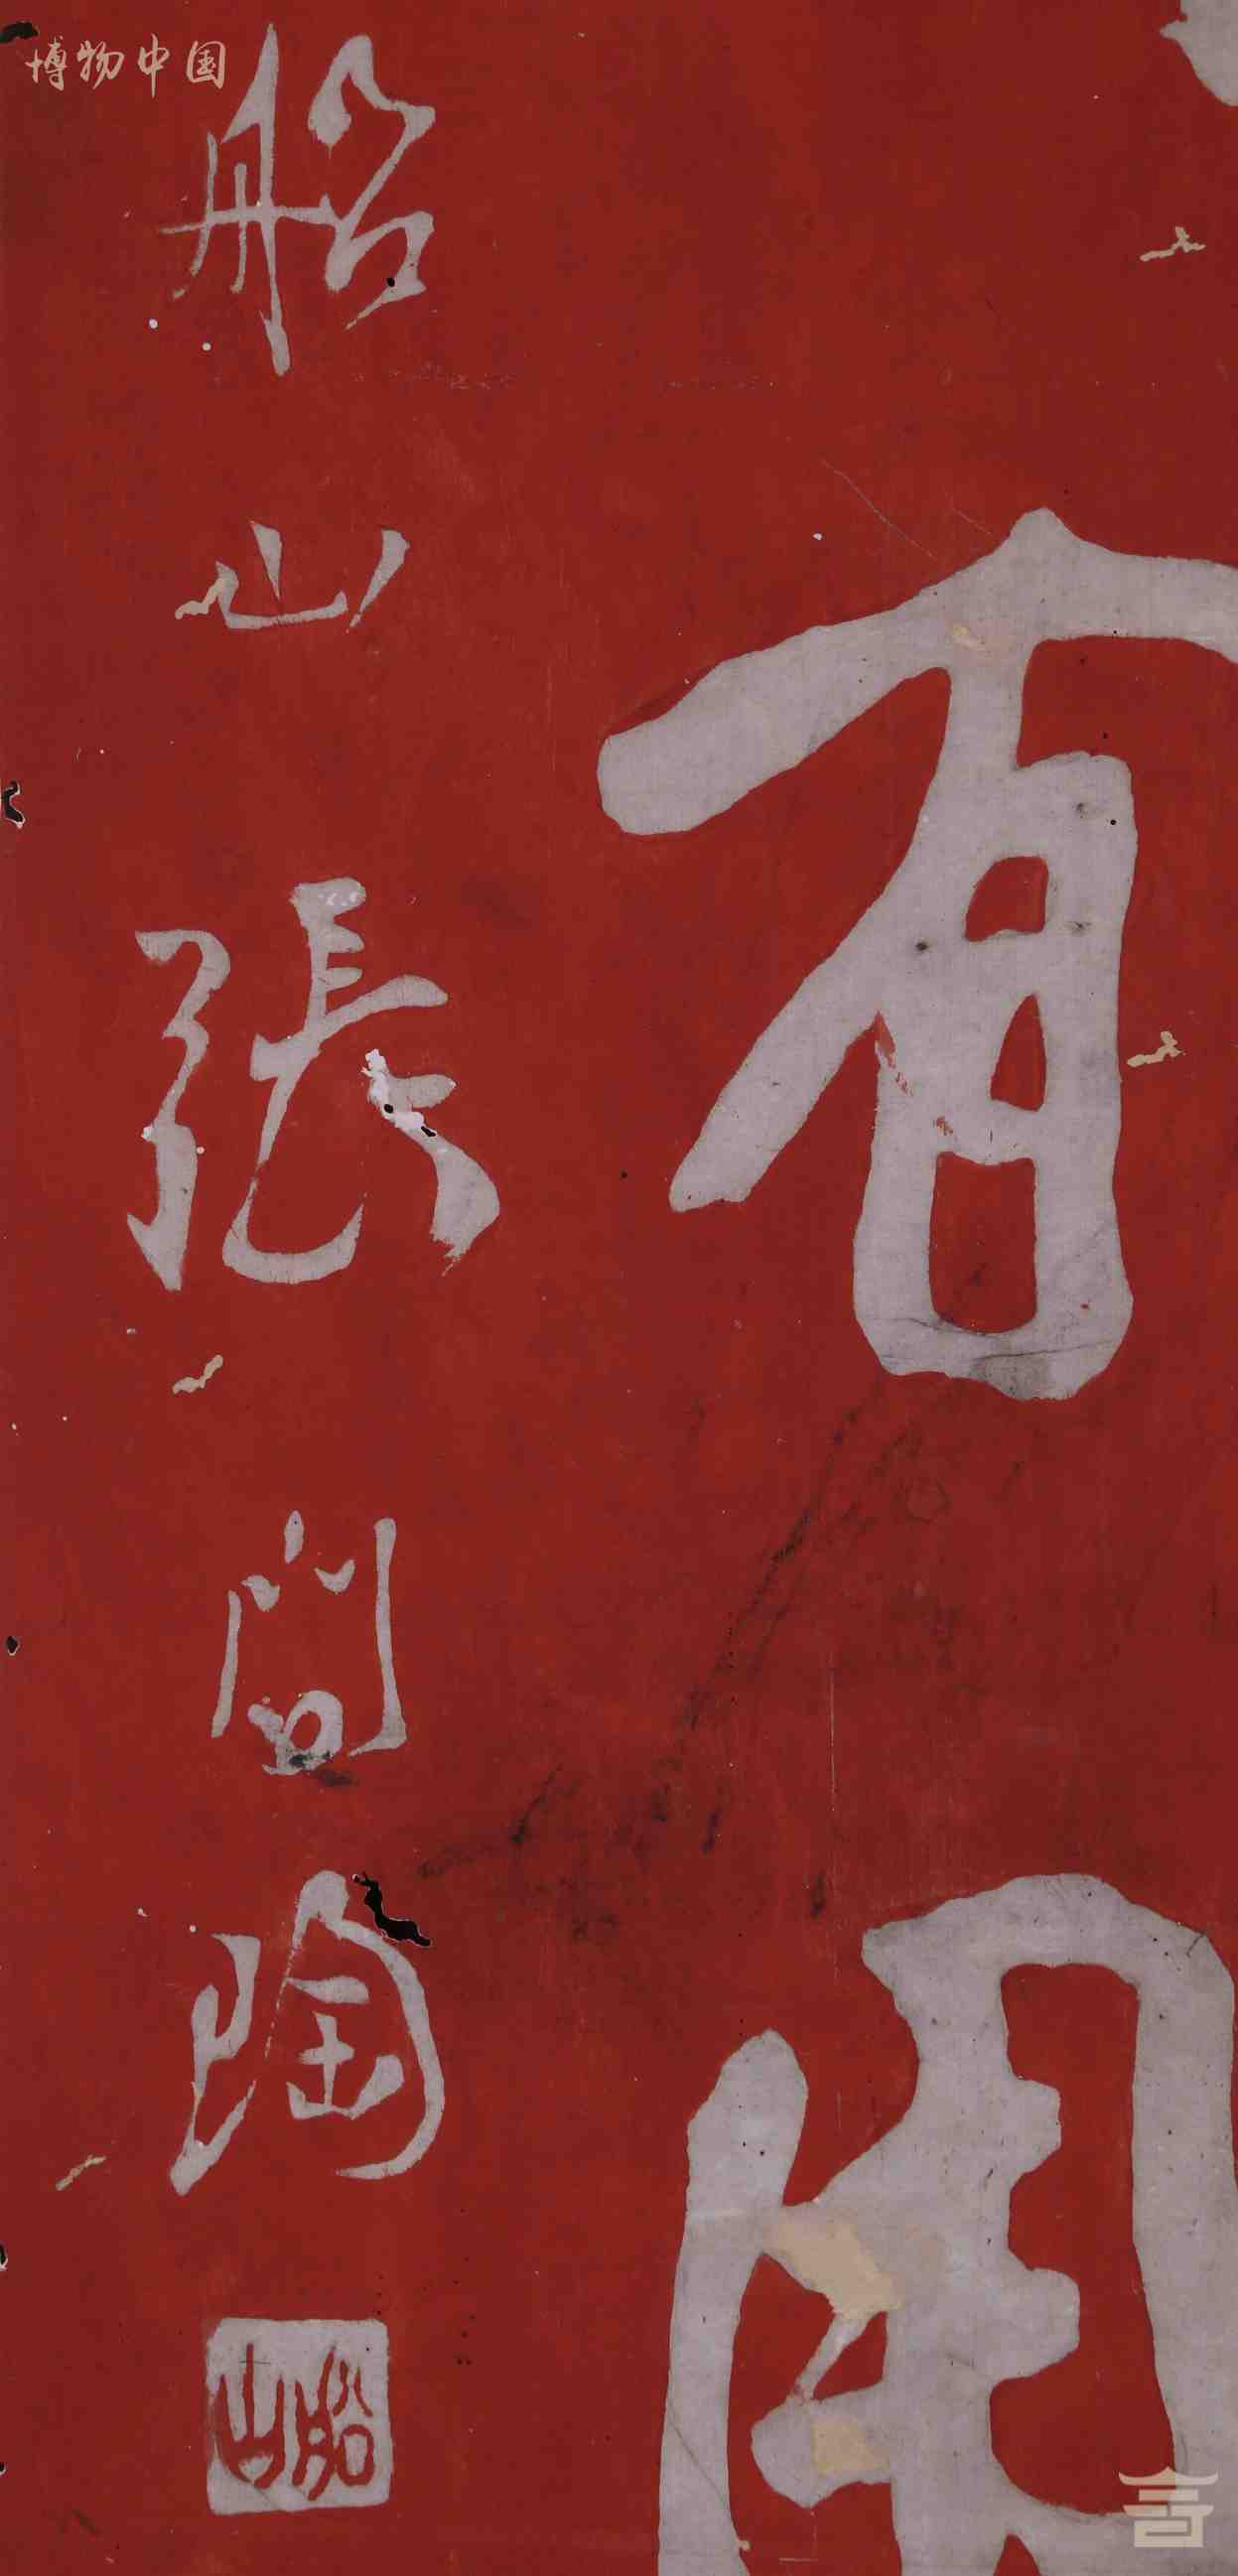 博物中国
有
船山張問陶
船山